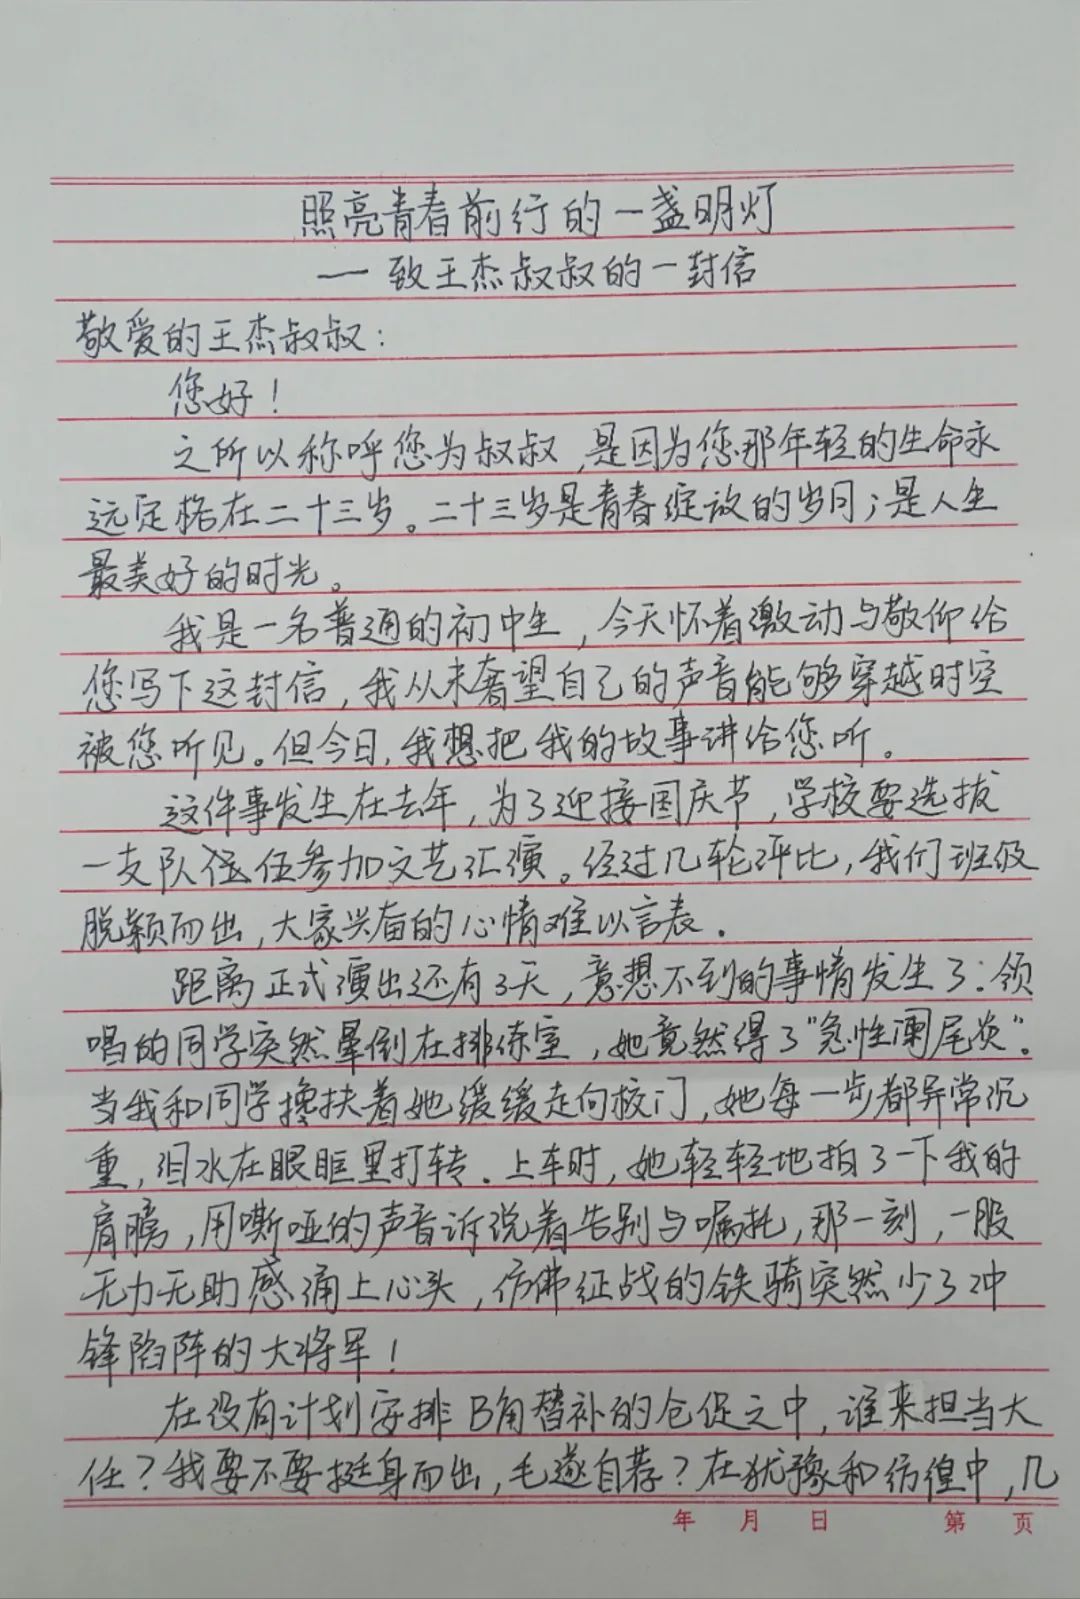 照亮青春前行的一盏明灯
—致王杰叔叔的一封信
敬爱的王杰叔叔：
您好！
之所以称呼您为叔叔，是因为您那年轻的生命永
远定格在二十三岁。二十三岁是青春绽放的岁月；是人生
最美好的时光。
我是一名普通的初中生，今天怀着激动与敬仰给
您写下这封信，我从未奢望自己的声音能够穿越时空
被您听见。但今日，我想把我的故事讲给您听。
这件事发生在去年，为了迎接国庆节，学校要选拔
一支队伍参加文艺汇演。经过几轮评比，我们班级
脱颖而出，大家兴奋的心情难以言表。
距离正式演出还有3天，意想不到的事情发生了：领
唱的同学突然晕倒在排练室，她竟然得了“急性阑尾炎”。
当我和同学搀扶着她缓缓走向校门，她每一步都异常沉
重，泪水在眼眶里打转。上车时，她轻轻地拍了一下我的
肩膀，用嘶哑的声音诉说着告别与嘱托，那一刻，一股
无力无助感涌上心头，仿佛征战的铁骑突然少了冲
锋陷阵的大将军！
在没有计划安排B角替补的仓促之中，谁来担当大
任？我要不要挺身而出，毛遂自荐？在犹豫和彷徨中，几
年 月 日 第 页